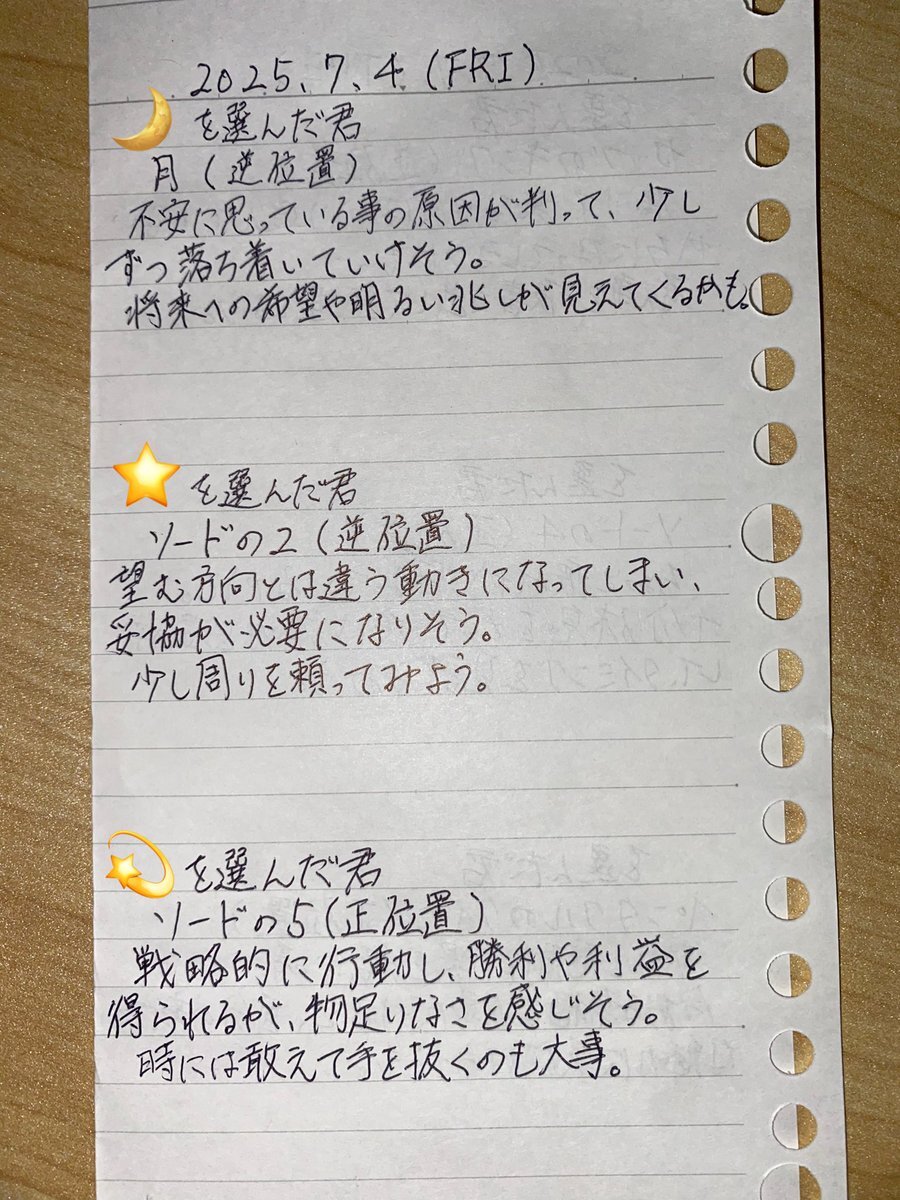 2025.7.4(FRI)
🌙を選んだ君
月(逆位置)
不安に思っている事の原因が判って、少し
ずつ落ち着いていけそう。
将来への希望や明るい兆しが見えてくるかも。
⭐を選んだ君
ソードの2(逆位置)
望む方向とは違う動きになってしまい、
妥協が必要になりそう。
少し周りを頼ってみよう。
💫を選んだ君
ソードの5(正位置)
戦略的に行動し、勝利や利益を
得られるが、物足りなさを感じそう。
時には敢えて手を抜くのも大事。